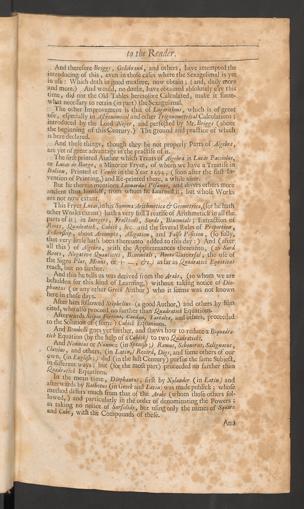 to the Reader.
And therefore Briggs, Gellibrand, and others, have attempted the
introducing of this, even in those cases where the Sexagesimal is yet
in use: Which doth in good measure, now obtain; (and, daily more
and more.) And would, no doubt, have obtained absolutely e're this
time, did not the Old Tables heretofore Calculated, make it some-
what necessary to retain (in part) the Sexagesimal.
The other Improvement is that of Logarithms, which is of great
use, especially in Astronomical and other Trigonometrical Calculations;
introduced by the Lord Neper, and perfected by Mr. Briggs (about
the beginning of this Century.) The ground and practise of which
is here declared.
And these things, though they be not properly Parts of Algebra,
are yet of great advantage in the practise of it.
The first printed Author which Treats of Algebra is Lucas Pacciolus,
or Lucas de Burgo, a Minorite Fryer, of whom we have a Treatise in
Italian, Printed at Venice in the Year 1494; (soon after the first In-
vention of Printing,) and Re-printed there, a while after.
But he therein mentions Leonardus Pisanus, and divers others more
ancient than himself, from whom he learned it; but whose Works
are not now extant.
This Fryer Lucas, in his Summa Arithmetica & Geometrica, (for he hath
other Works extant) hath a very full Treatise of Arithmetick in all the
parts of it; in Integers, Fractions, Surds, Binomials; Extraction of
Roots, Quadratick, Cubick, &c. and the several Rules of Proportion,
Fellowship, Alligation, and False Position, (so fully,
that very little hath been thereunto added to this day:) And (after
all this) of Algebra, with the Appurtenances thereunto, (as Surd
Roots, Negative Quantities, Binomials, Roots Universal, the use of
the Signs Plus, Minus, or + −, &c.) as far as Quadratick Equations
reach, but no farther.
And this he tells us was derived from the Arabs, (to whom we are
beholden for this kind of Learning,) without taking notice of Dio-
phantus (or any other Greek Author) who it seems was not known
here in those days.
After him followed Stifelius (a good Author,) and others by him
cited, who also proceed no further than Quadratick Equations.
Afterwards Scipio Ferreus, Cardan, Tartalea, and others, proceeded
to the Solution of (some) Cubick Equations.
And Bombell goes yet further, and shews how to reduce a Biquadra-
tick Equation (by the help of a Cubick) to two Quadraticks.
And Nunnius or Nonez (in Spanish;) Ramus, Schonerus, Salignacus,
Clavius, and others, (in Latin,) Record, Digs, and some others of our
own, (in English;) did (in the last Century) pursue the same Subject,
in different ways; but (for the most part) proceeded no further than
Quadratick Equations.
In the mean time, Diophantus, first by Xylander (in Latin) and
afterwards by Bachetus (in Greek and Latin) was made publick; whose
method differs much from that of the Arabs (whom those others fol-
lowed,) and particularly in the order of denominating the Powers;
as taking no notice of Sursolids, but using only the names of Square
and Cube, with the Compounds of these.
And